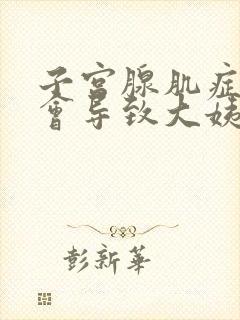 子宫腺肌症
會导致大姨
彭新華